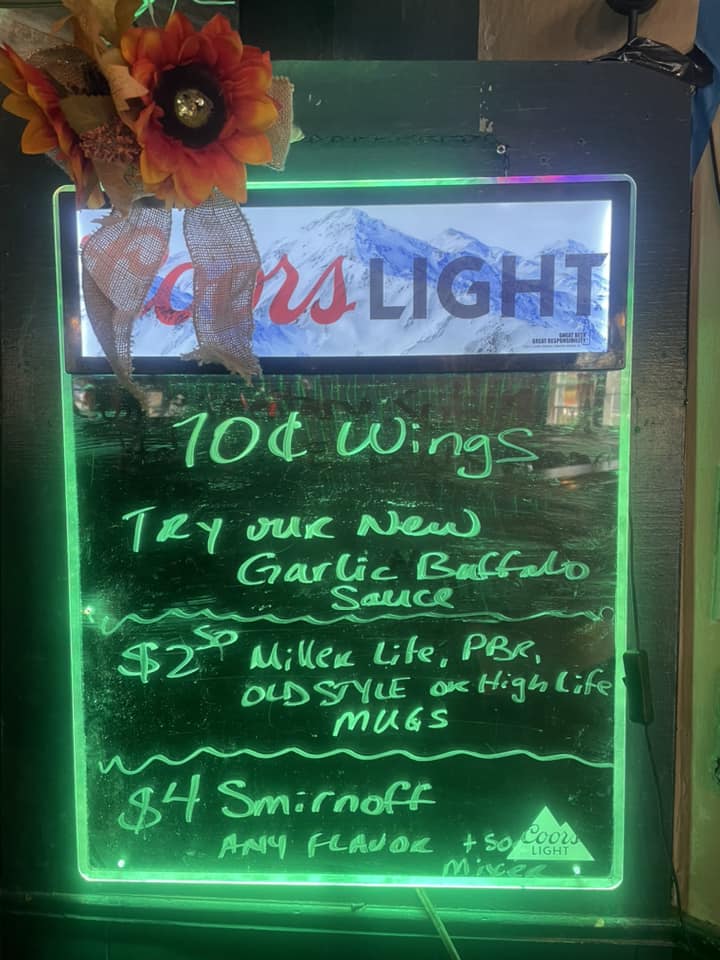 Coors LIGHT
GREAT BEER
GREAT RESPONSIBILITY
10¢ Wings
TRY OUR New
Garlic Buffalo
Sauce
$2 50 Miller Lite, PBR,
OLD STYLE OR High Life
MUGS
$4 Smirnoff
ANY FLAVOR + SO
Coors
LIGHT